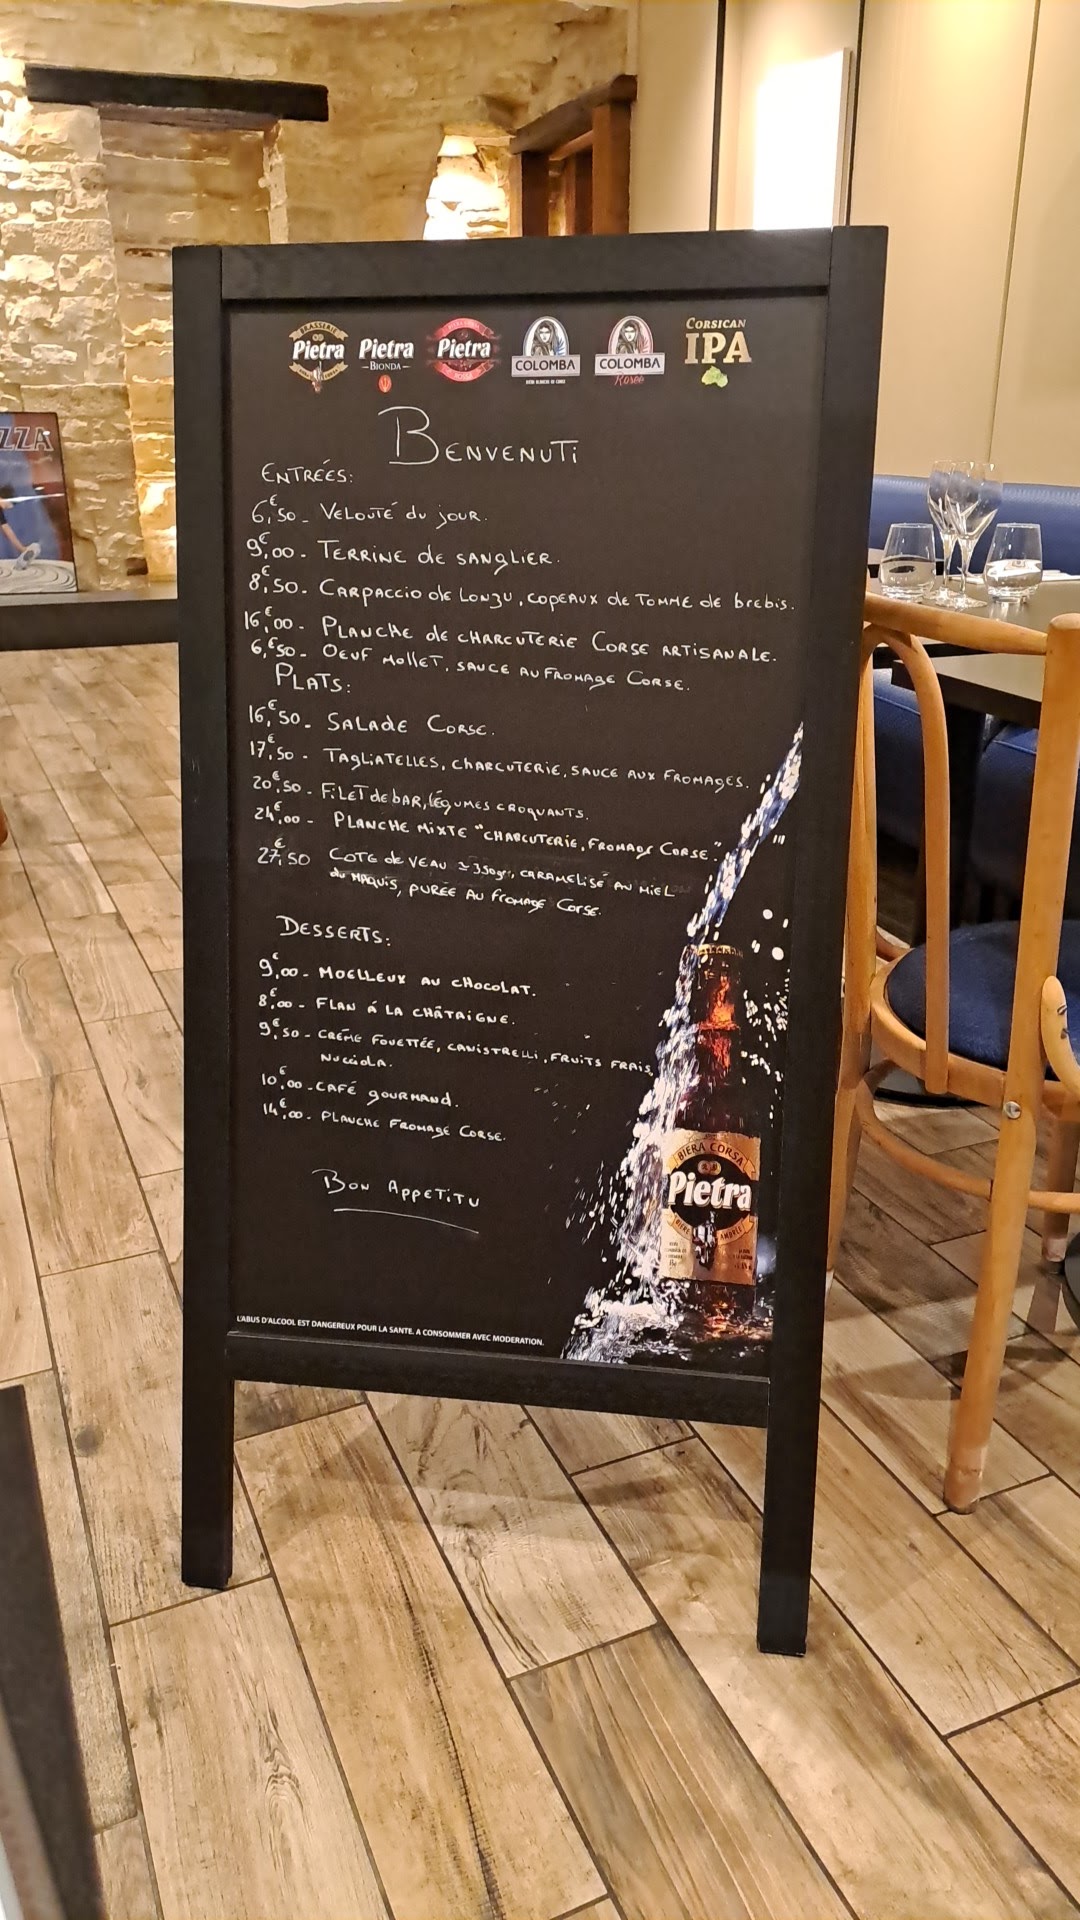 ZZA
BRASSERIE Pietra
Pietra BIONDA
Pietra
COLOMBA
COLOMBA Rosée
CORSICAN IPA
BENVENUTI
ENTRÉES:
6,€50 - VELOUTÉ du jOUR.
9,€00 - TERRINE de SANGLIER.
8,€50 - CARPACCIO de LONZU, COPEAUX de TOMME de brebis.
16,€00 - PLANCHE de CHARCUTERIE CORSE ARTISANALE.
6,€50 - OEUF MOLLET, SAUCE AU FROMAGE CORSE.
PLATS:
16,€50 - SALADE CORSE.
17,€50 - TAGLIATELLES, CHARCUTERIE, SAUCE AUX FROMAGES.
20,€50 - FILET de bAR, LÉGUMES CROQUANTS.
24,€00 - PLANCHE MIXTE "CHARCUTERIE, FROMAGE CORSE".
27,€50 COTE de VEAU ≃ 350gr, CARAMELISÉ AU MIEL
du MAQUIS, PURÉE AU FROMAGE CORSE.
DESSERTS:
9,€00 - MOELLEUX AU CHOCOLAT.
8,€00 - FLAN À LA CHÂTAIGNE.
9,€50 - CRÈME FOUETTÉE, CANISTRELLI, FRUITS FRAIS,
NUCCIOLA.
10,€00 - CAFÉ GOURMAND.
14,€00 - PLANCHE FROMAGE CORSE.
BON APPETITU
BIERA CORSA
Pietra
BIÈRE AMBRÉE
L'ABUS D'ALCOOL EST DANGEREUX POUR LA SANTE. A CONSOMMER AVEC MODERATION.